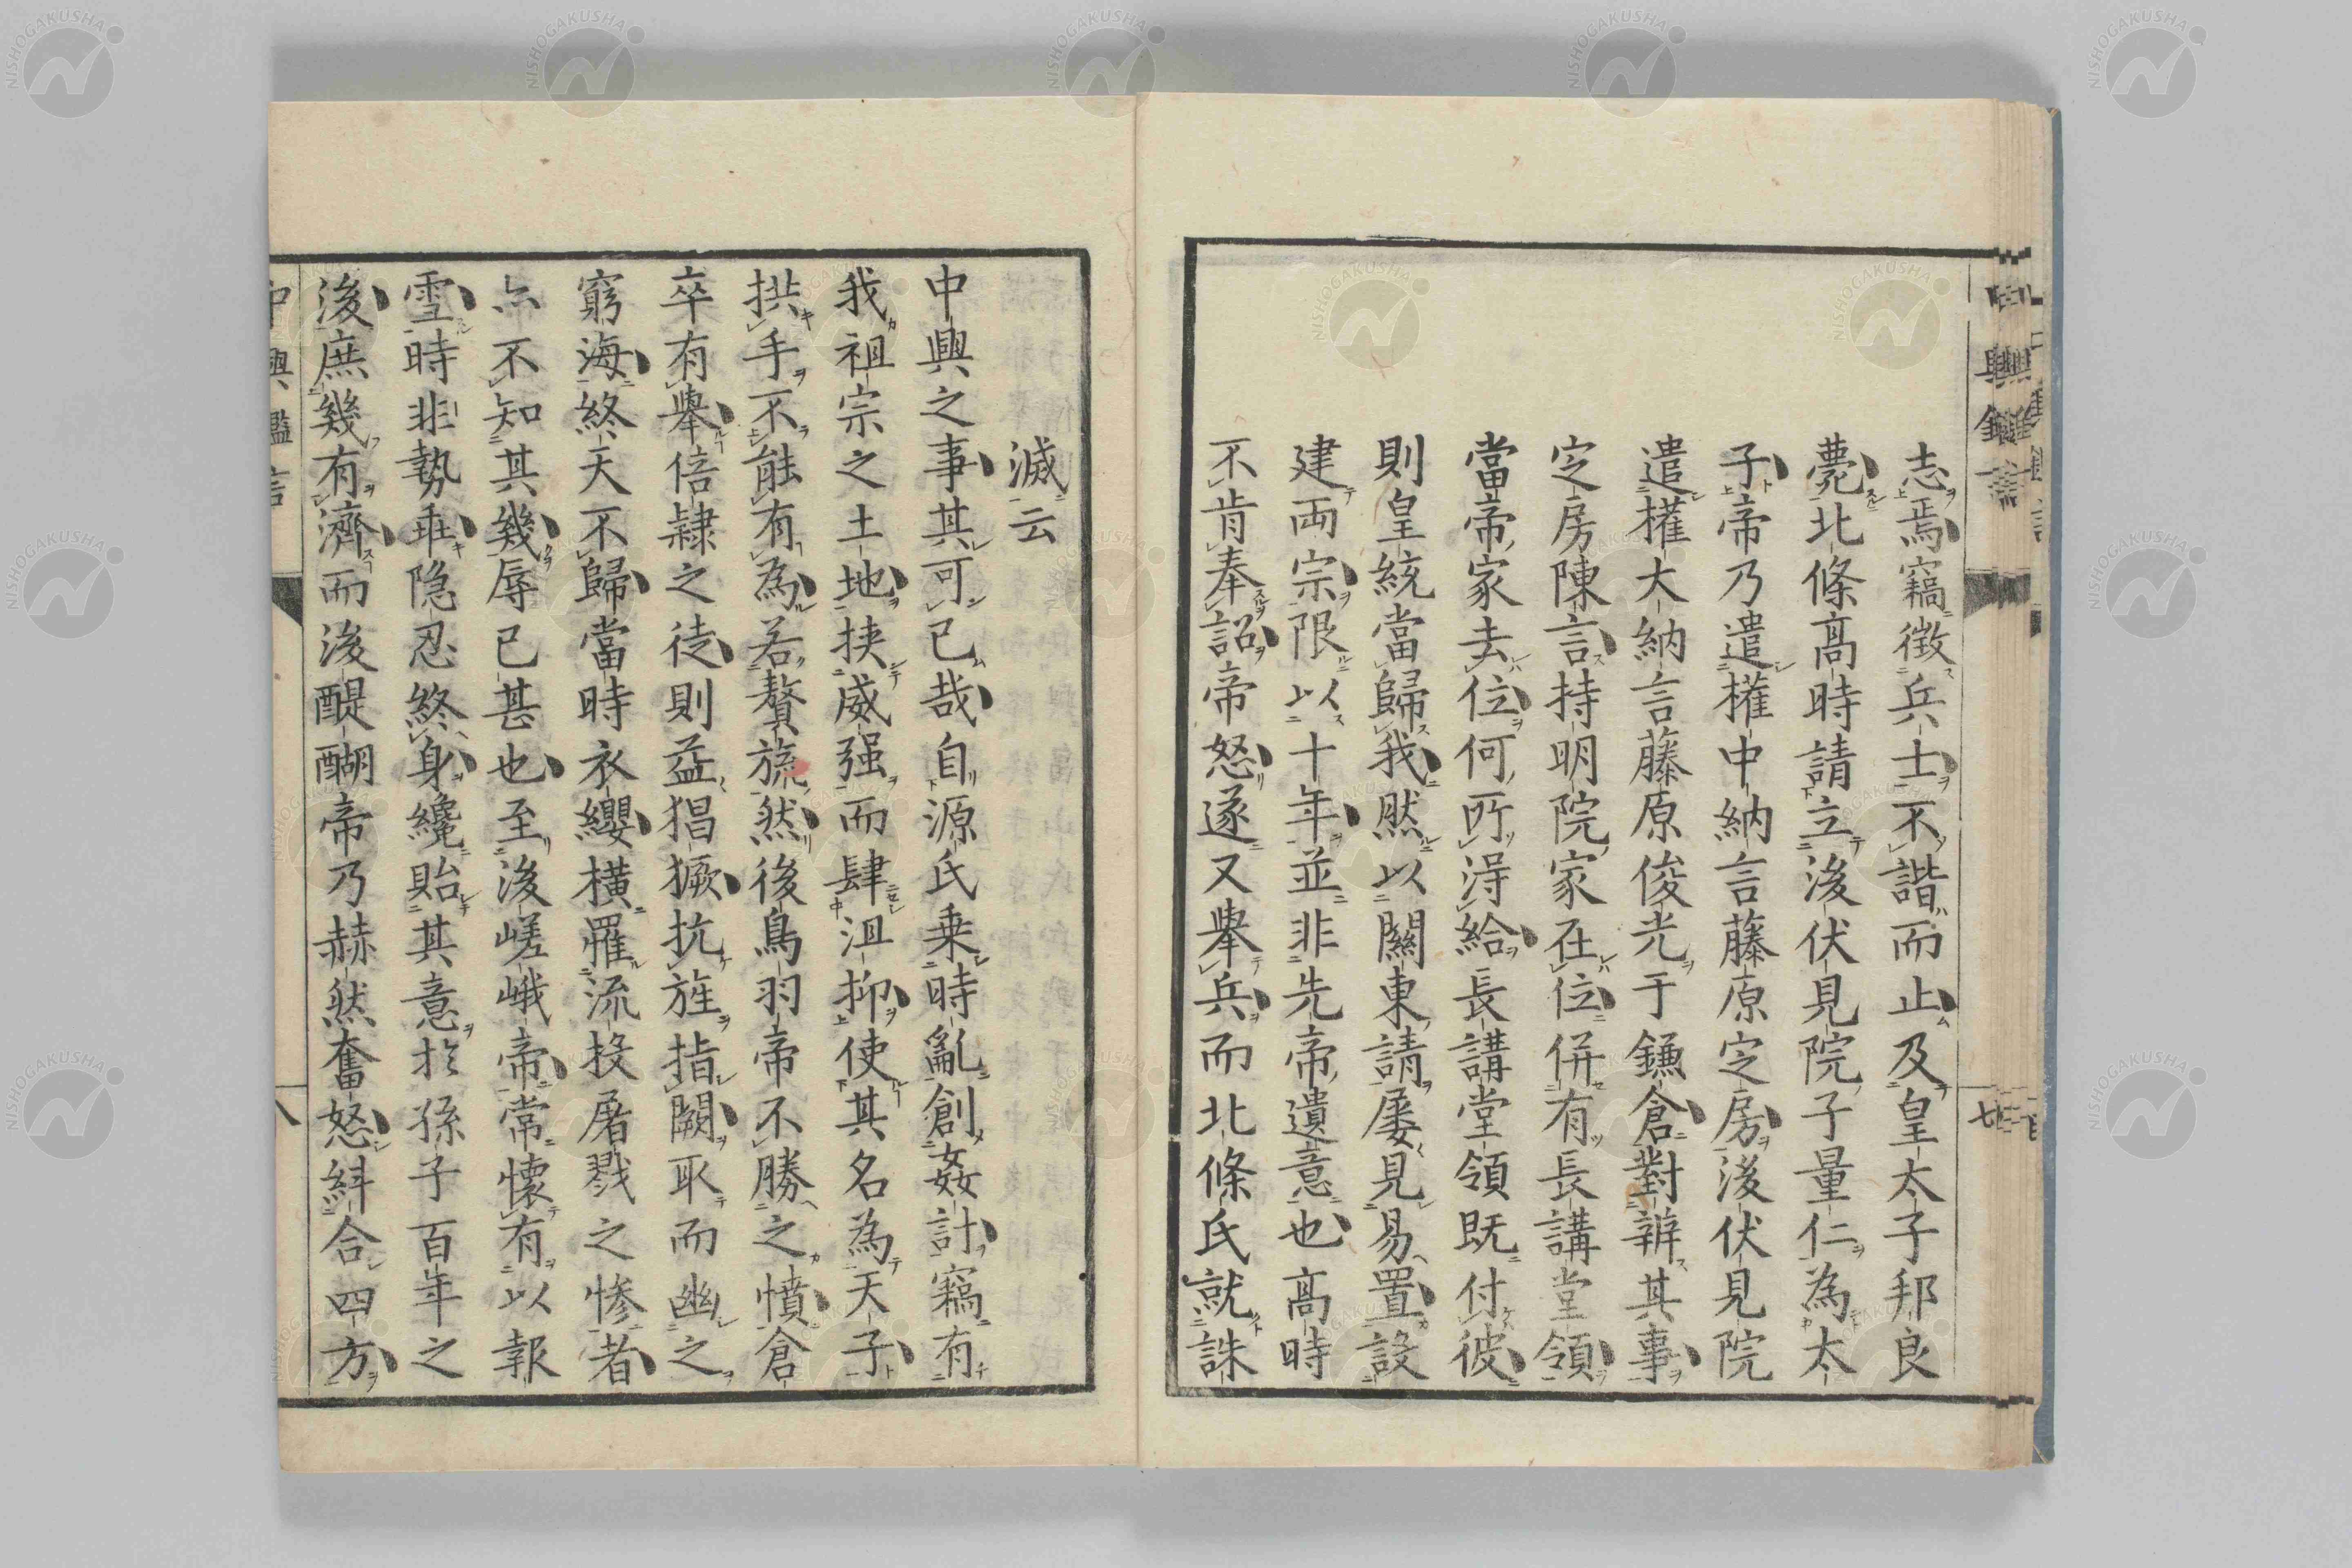 志焉竊徵兵士不諧而止及皇太子邦良
薨北條髙時請立後伏見院子量仁為太
子帝乃遣權中納言藤原定房後伏見院
遣權大納言藤原俊光于鎌倉對辨其事
定房陳言持明院家在位併有長講堂領
當帝家去位何所得給長講堂領既付彼
則皇統當歸我然以關東請屡見易置設
建両宗限以十年並非先帝遺意也髙時
不肯奉詔帝怒遂又舉兵而北條氏就誅
滅云
中興之事其可已哉自源氏乗時亂創姦計竊有
我祖宗之土地挟威强而肆沮抑使其名為天子
拱手不能有為若贅旒然後鳥羽帝不勝之憤倉
卒有舉倍隷之徒則益猖獗抗旌指闕取而幽之
窮海終天不歸當時衣纓横罹流投屠戮之惨者
亦不知其幾辱已甚也至後嵯峨帝常懐有以報
雪時非勢乖隐忍終身纔貽其意於孫子百年之
後庶幾有濟而後醍醐帝乃赫然奮怒糾合四方
中興鑑言
八
NISHOGAKUSHA